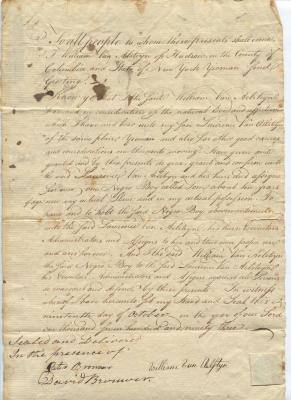 To all people to whom these presents shall come
I William Van Alstyn of Hudson in the County of
Columbia and State of New York Yeoman Send
Greeting
Know ye that I the said William Van Alstyn
for and in consideration of the natural love and affection
which I have and bear unto my Son Laurence Van Alstyn
of the same place Yeoman and also for other good causes
and considerations me thereunto moving Have given and
granted and by these presents do give grant and confirm unto
the said Laurence Van Alstyn and his heirs and assigns
for ever one Negro Boy called
age now my actual Slave and in my actual possession To
have and to hold the said Negro Boy abovementioned
unto the said Laurence Van Alstyn, his heirs Executors
Administrators and Assigns to his and their own proper use
and for ever. And I the said William Van Alstyn
the said Negro Boy to the said Laurence Van Alstyn
his Executors Administrators and Assigns against all Persons
warrant and defend by these presents. In witness
whereof I have hereunto set my Hand and Seal this
nineteenth day of October in the year of our Lord
one thousand seven hundred and ninety three
Sealed and Delivered
In the presence of
William Van Alstyn
David Brouwer